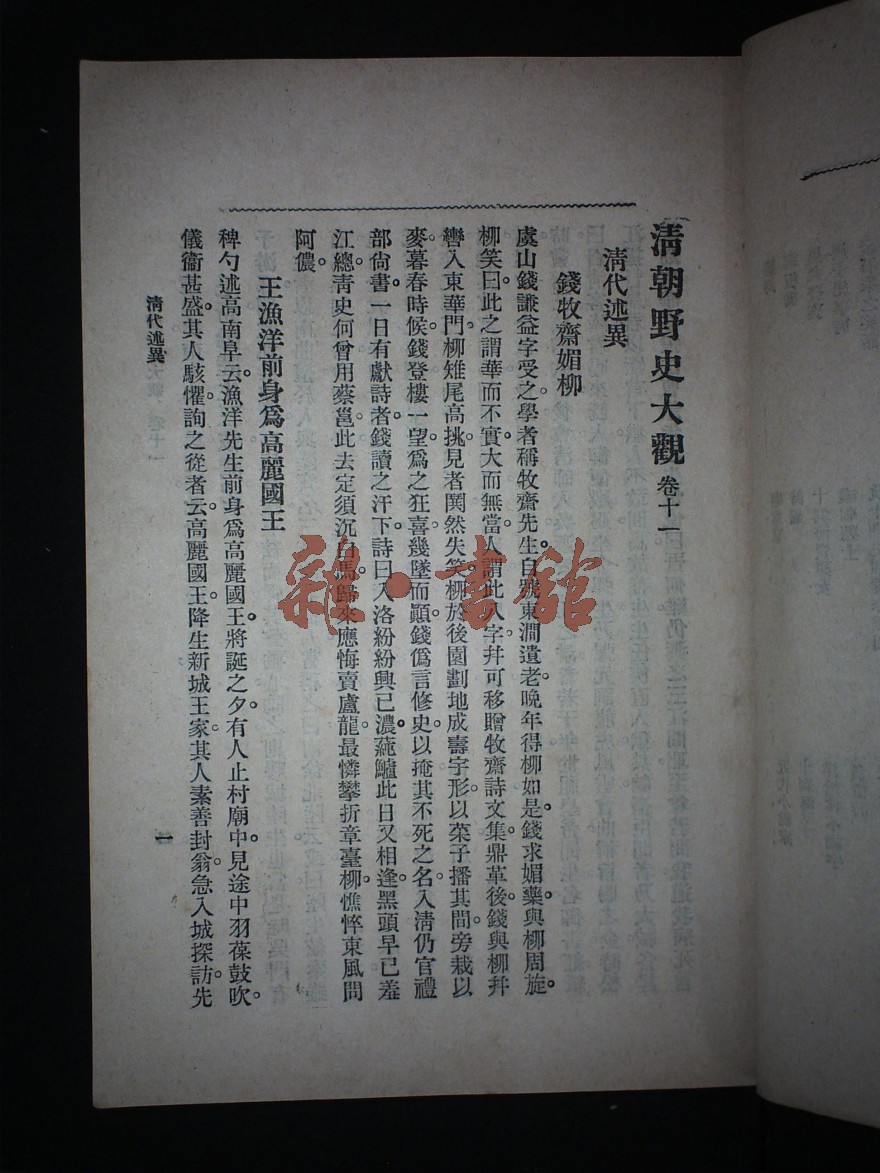 清朝野史大觀 卷十一
清代述異
錢牧齋媚柳
虞山錢謙益字受之。學者稱牧齋先生。自號東澗遺老。晚年得柳如是。錢求媚藥與柳周旋。
柳笑曰。此之謂華而不實。大而無當。人謂此八字幷可移贈牧齋詩文集。鼎革後。錢與柳幷
轡入東華門。柳雉尾高挑。見者鬨然失笑。柳於後園劃地成壽字形。以菜子播其間。旁栽以
麥。暮春時候。錢登樓一望。爲之狂喜。幾墜而顚。錢僞言修史。以掩其不死之名。入淸仍官禮
部尙書。一日有獻詩者。錢讀之汗下。詩曰。入洛紛紛興已濃。蒓鱸此日又相逢。黑頭早已羞
江總。靑史何曾用蔡邕。此去定須沉白馬。歸來應悔賣盧龍。最憐攀折章臺柳。憔悴東風問
阿儂。
王漁洋前身爲高麗國王
稗勺述高南阜云。漁洋先生前身爲高麗國王。將誕之夕。有人止村廟中。見途中羽葆鼓吹。
儀衞甚盛。其人駭懼。詢之從者。云高麗國王降生新城王家。其人素善封翁。急入城探訪。先
清代述異
一
雜·書館